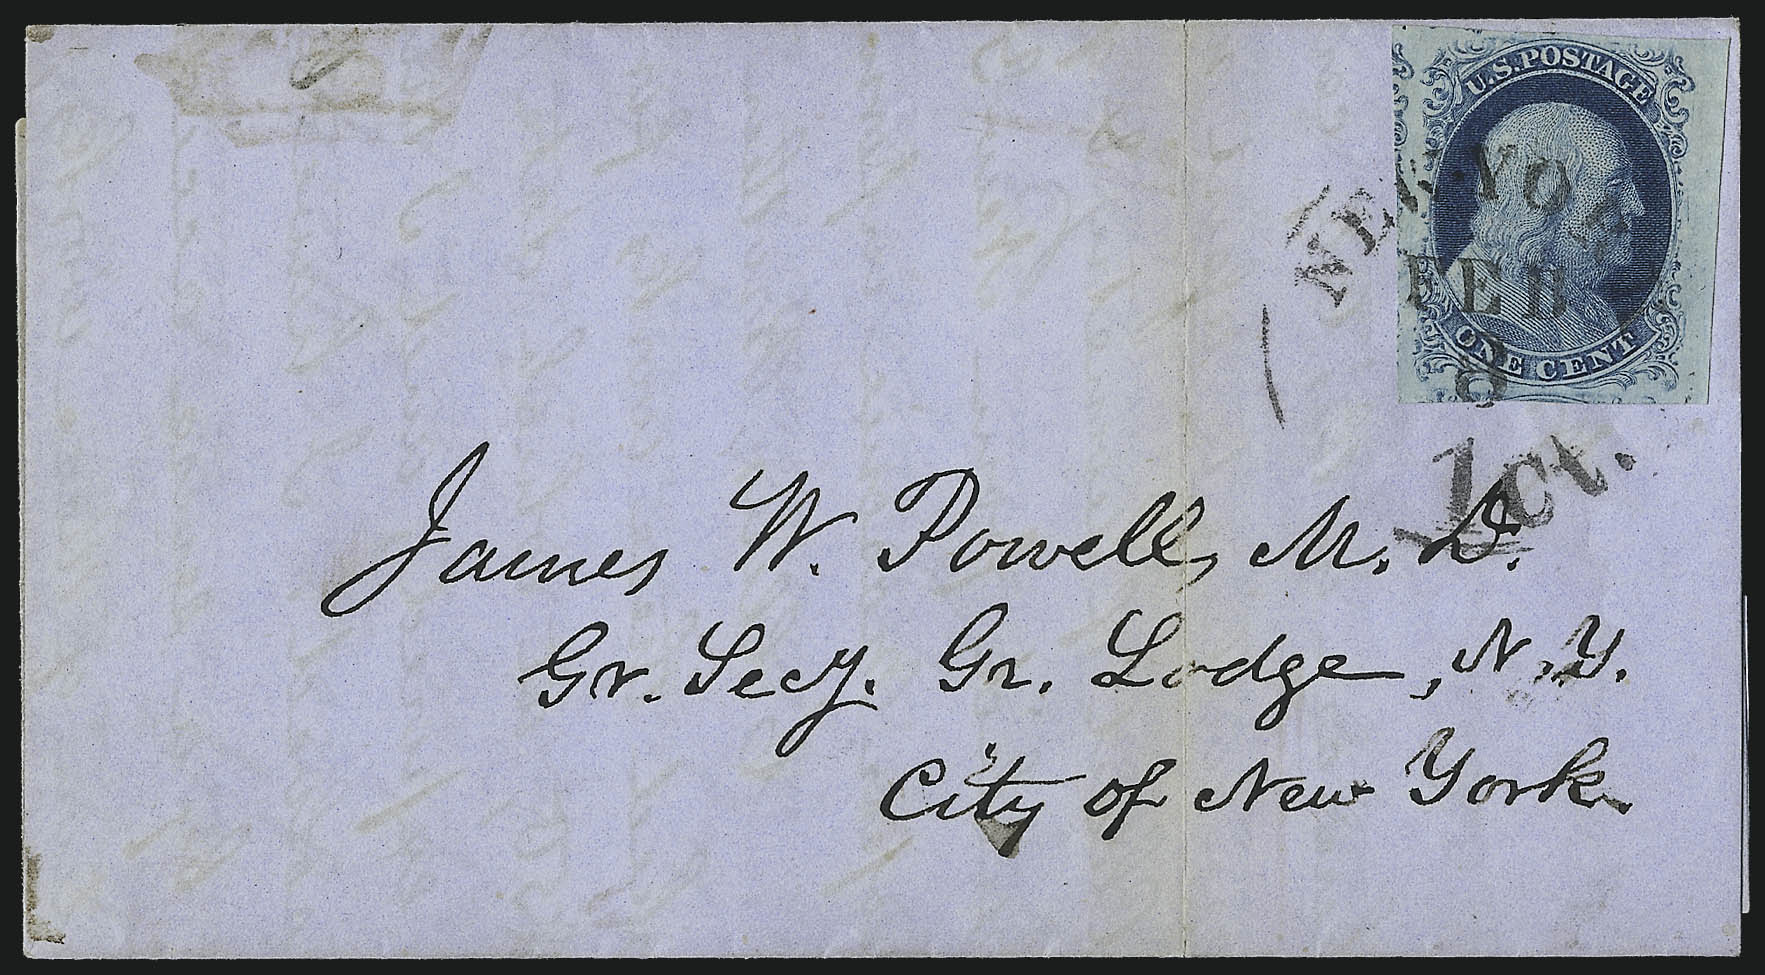 U.S. POSTAGE
ONE CENT
NEW-YORK
FEB
8
1 ct.
James W. Powell, M. D.
Gr. Secy. Gr. Lodge, N. Y.
City of New York.